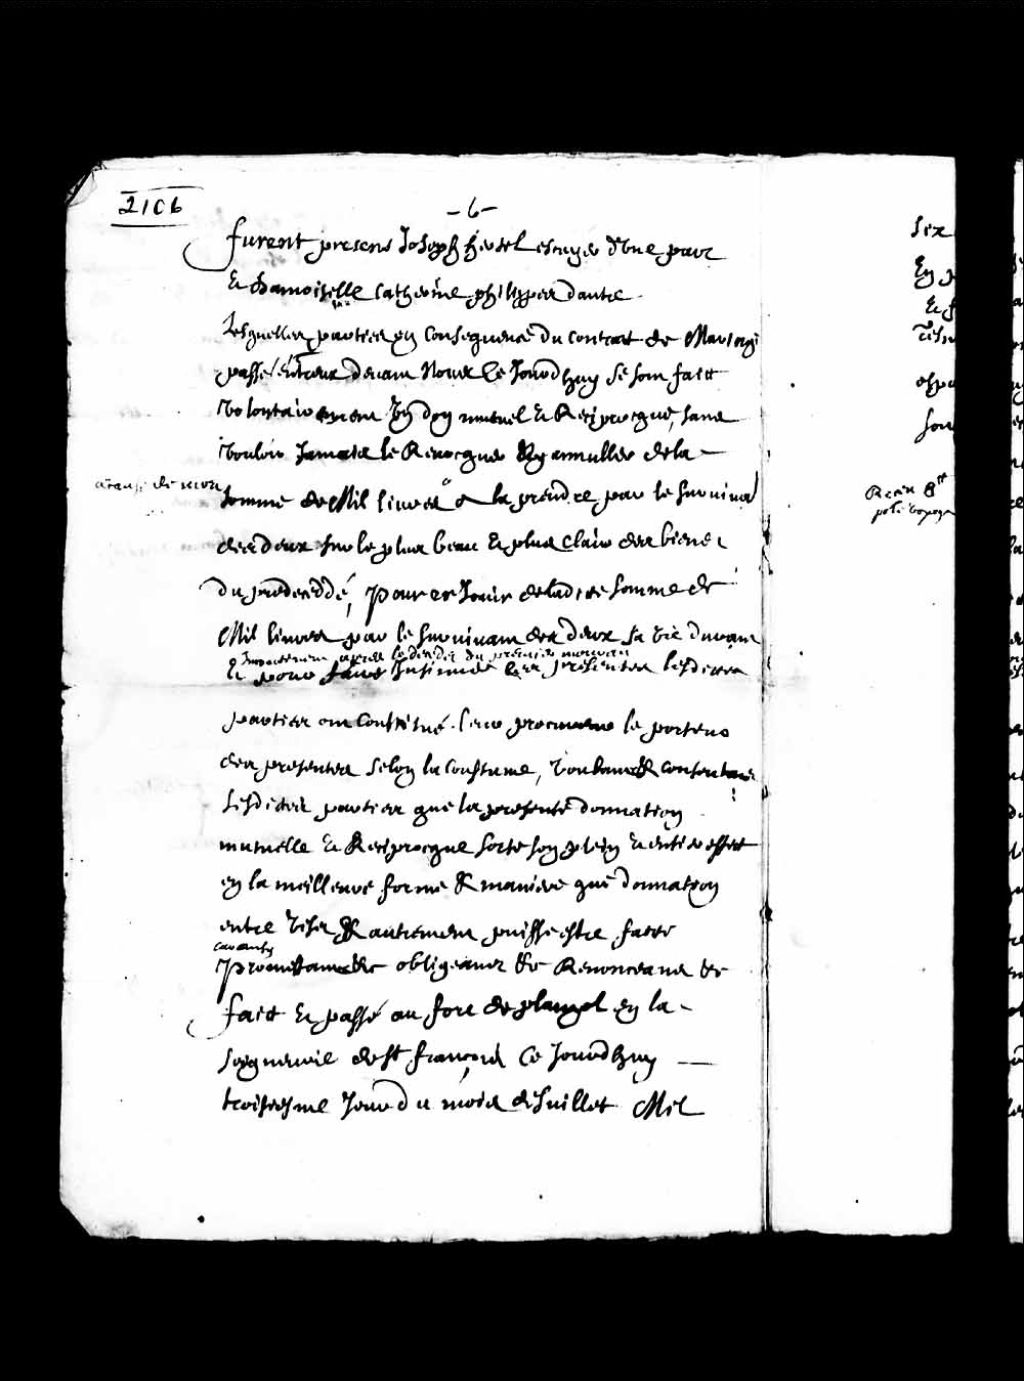 2106
-6-
furent presens Joseph hertel escuyer d'une part
Et damoiselle catherine philippes dautre.
Lesquelles parties en consequence du contrat de Mariage
passé entreux devant Nous Ce Jourdhuy se sont faitt
Volontairement Un don mutuel et Reciprocque, sans
vouloir Jamais le Revocquer Ny annuller de la
somme de Mil livres a la prendre par le survivant
des deux sur le plus beau et plus clair des biens
du predecedé, Pour en Jouir de ladite somme de
Mil livres par le survivant des deux sa vie durant
du premier mourant
Et pour faire Insinuer les presentes lesdites
parties ont constitué leur procureur le porteur
des presentes selon la coustume, voulans et consentans
Lesdites parties que la presente donnation
mutuelle et Reciprocque sorte son plein et entier effect
en la meilleure forme et maniere que donnation
entre vifs et autrement puisse estre faite
Promettans etc obligeans etc Renonceans etc
fait et passé au fort de en la
seigneurie de st françois Ce Jourdhuy
troisiesme Jour du mois de Juillet Mil
six
En
Et